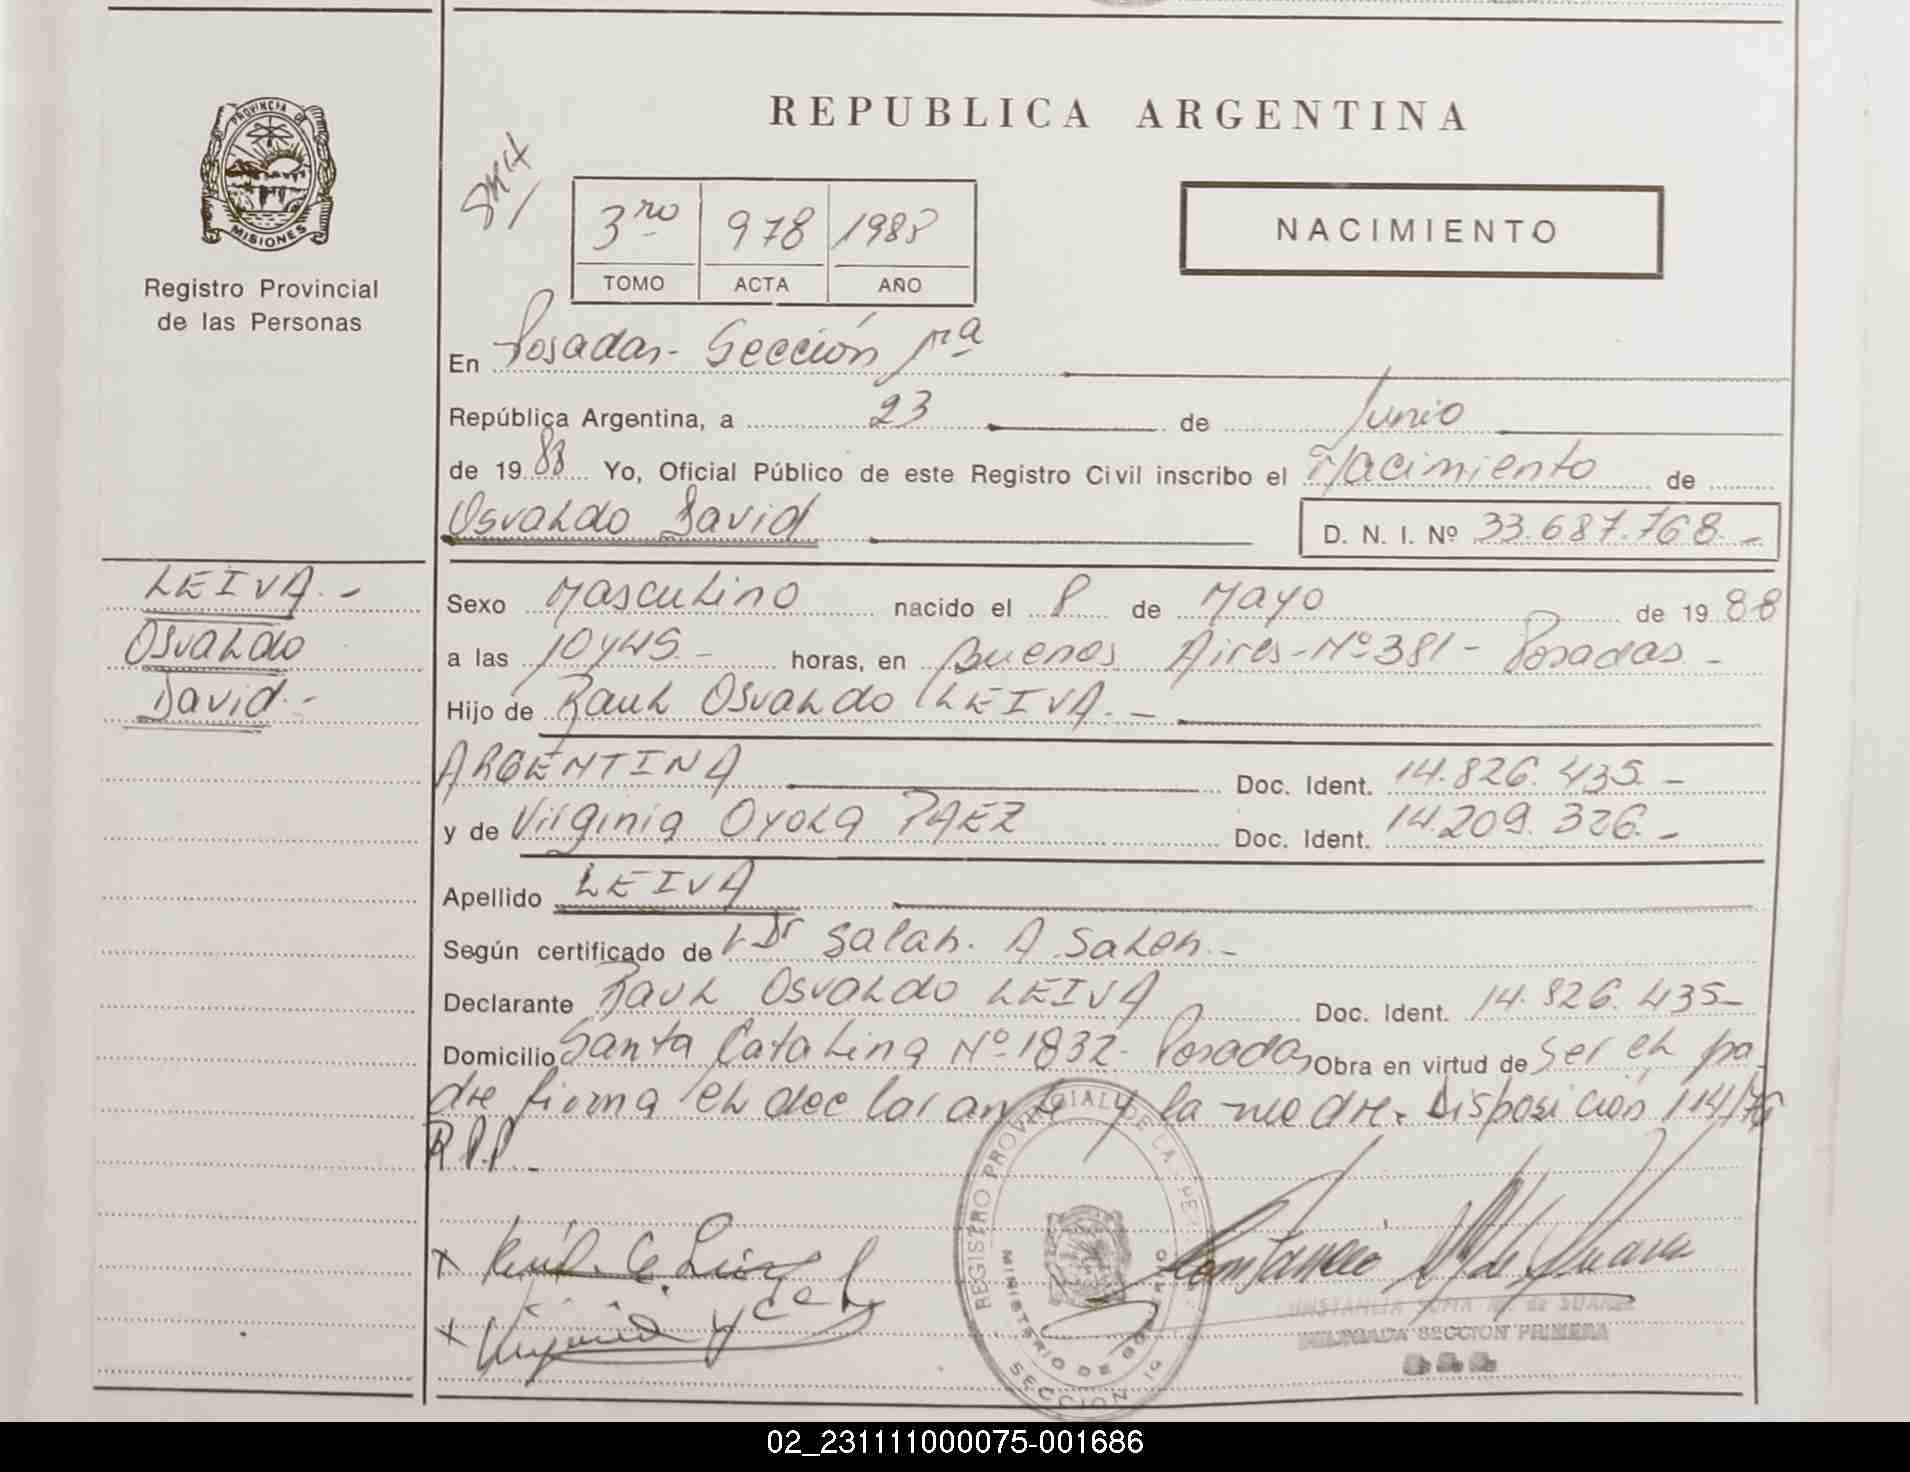 REPUBLICA ARGENTINA
PROVINCIA DE
MISIONES
Registro Provincial
de las Personas
3ro 978 1988
TOMO ACTA AÑO
NACIMIENTO
En Posadas - Sección 1ra
República Argentina, a 23 de Junio
de 1988 Yo, Oficial Público de este Registro Civil inscribo el Nacimiento de
Osvaldo David D. N. I. Nº 33.687.768.-
LEIVA.-
Osvaldo
David.-
Sexo Masculino nacido el 8 de Mayo de 1988
a las 10 y 45 - horas, en Buenos Aires - Nº 381 - Posadas -
Hijo de Raul Osvaldo LEIVA. -
ARGENTINA Doc. Ident. 14.826.435.-
y de Virginia Oyola PAEZ Doc. Ident. 14.209.326.-
Apellido LEIVA
Según certificado de Dr Salah. A Saleh.-
Declarante Raul Osvaldo LEIVA Doc. Ident. 14.826.435-
Domicilio Santa Catalina Nº 1832- Posadas Obra en virtud de ser el pa
dre firma el declarante y la madre. Disposición 114/76
R.P.P. -
REGISTRO PROVINCIAL DE LAS PER
MINISTERIO DE GOBIERNO
SECCION 1ª
CONSTANCIA SOFIA M. de SUAREZ
DELEGADA SECCION PRIMERA
02_231111000075-001686